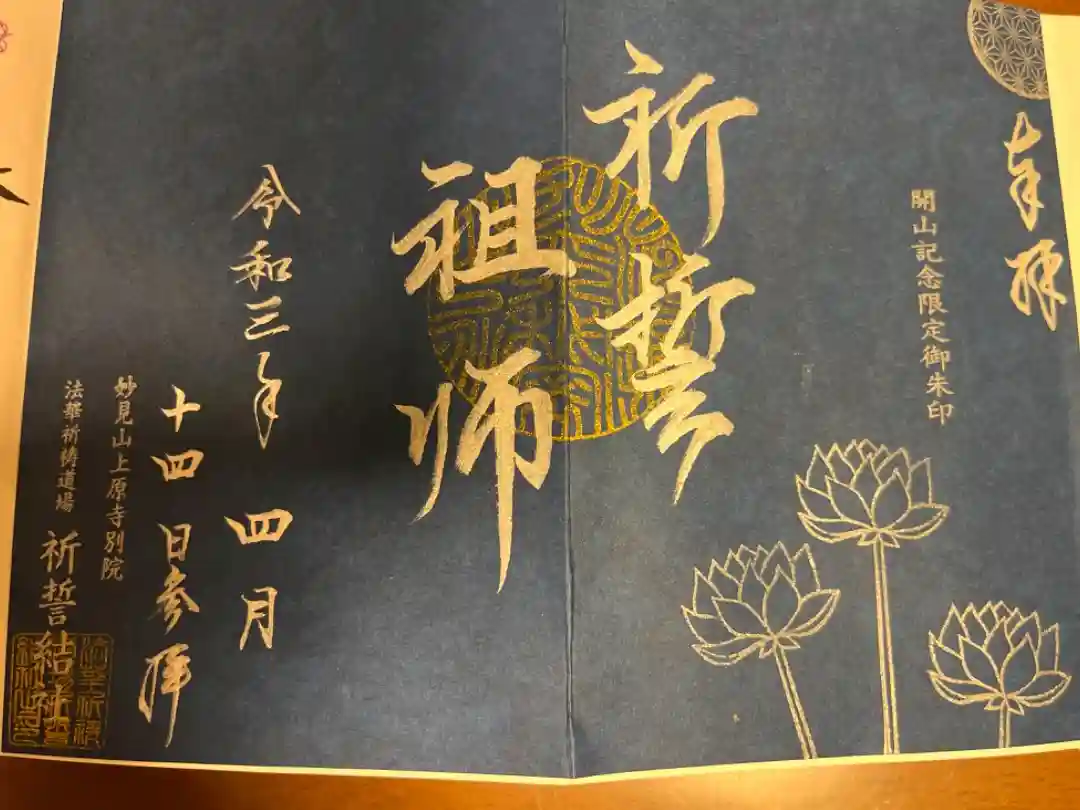 奉拝
開山記念限定御朱印
祈誓
祖师
令和三年四月
十四日参拝
妙見山上原寺別院
法華祈祷道場
祈誓結社